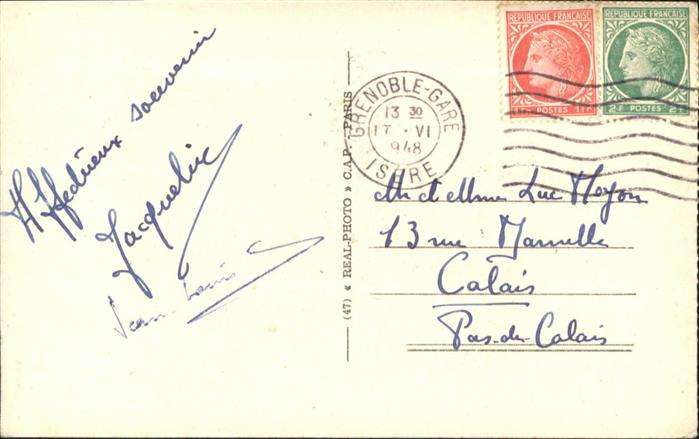 Affectueux souvenir
Jacqueline
Jean-Louis
(47) « REAL-PHOTO » C.A.P. - PARIS
REPUBLIQUE FRANÇAISE
1F POSTES
REPUBLIQUE FRANÇAISE
2F POSTES 2F
GRENOBLE-GARE
13 30
17 · VI
1948
ISERE
Mr et Mme Luc Moyon
13 rue
Calais
Pas-de-Calais